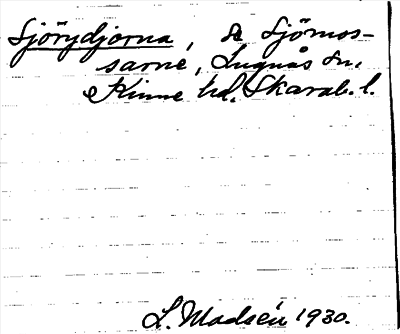 Sjörydjorna, se Sjömos-
sarne, Lugnås sn,
Kinne hd. Skarab. l.
L. Madsén 1930.